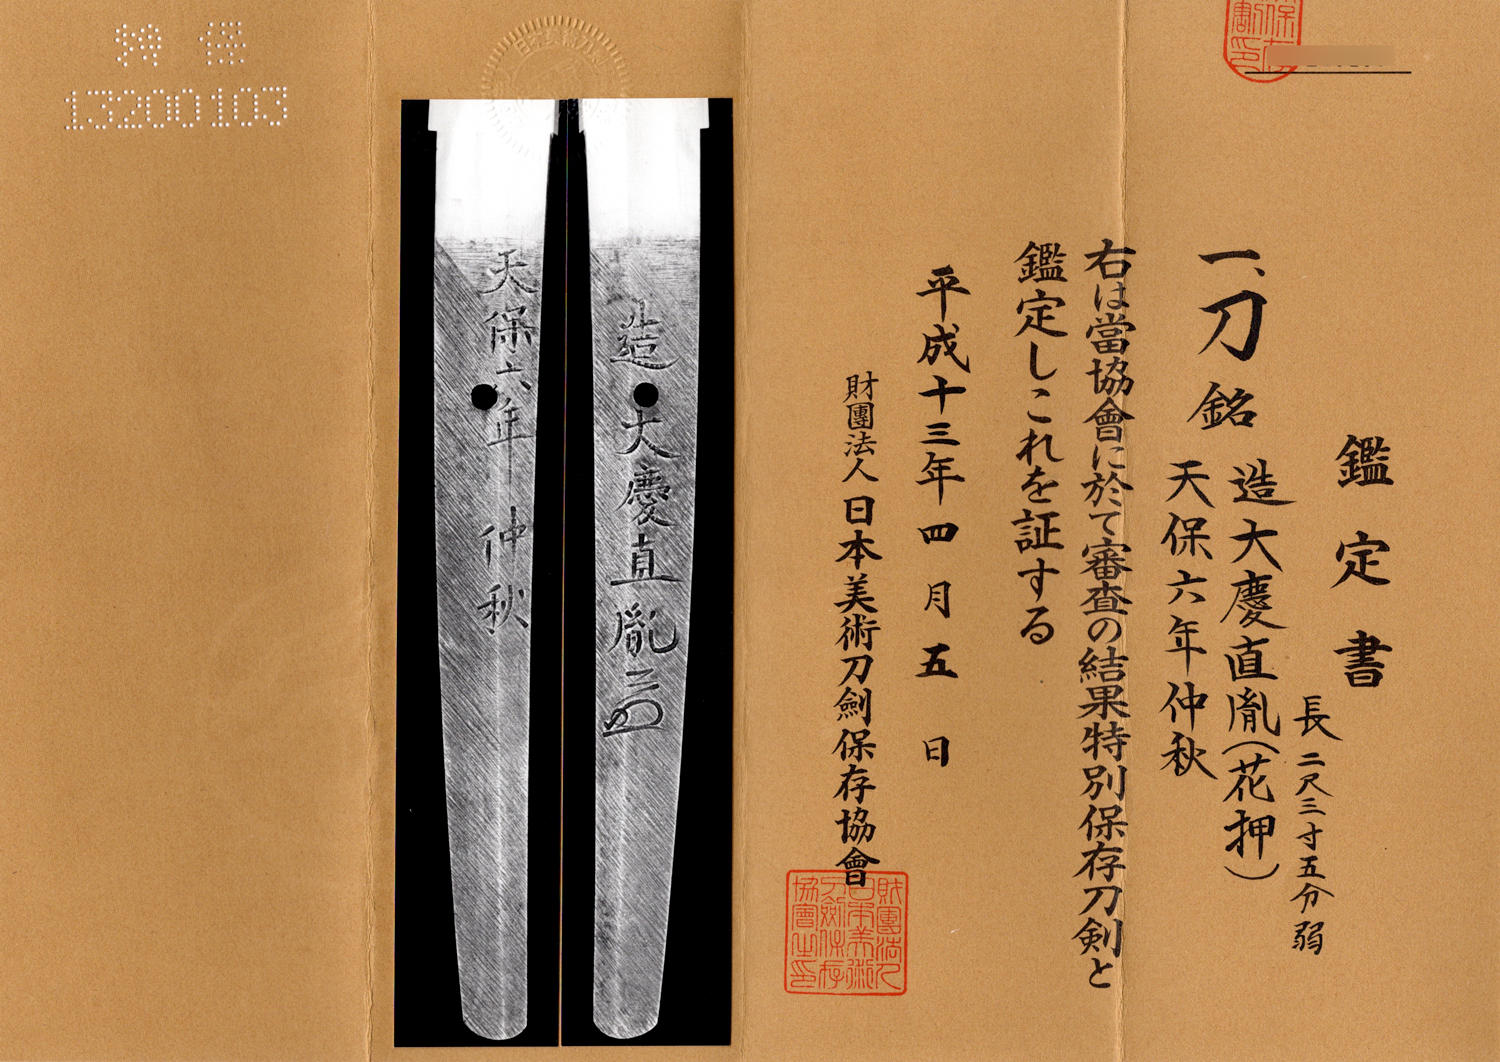 鑑定書
一、刀 銘
長二尺三寸五分弱
造大慶直胤(花押)
天保六年仲秋
右は當協會に於て審査の結果特別保存刀剣と
鑑定しこれを証する
平成十三年四月五日
財團法人日本美術刀劍保存協會
財團法人
日本美術
刀劍保存
協會之印
造大慶直胤
天保六年仲秋
特保
13200103